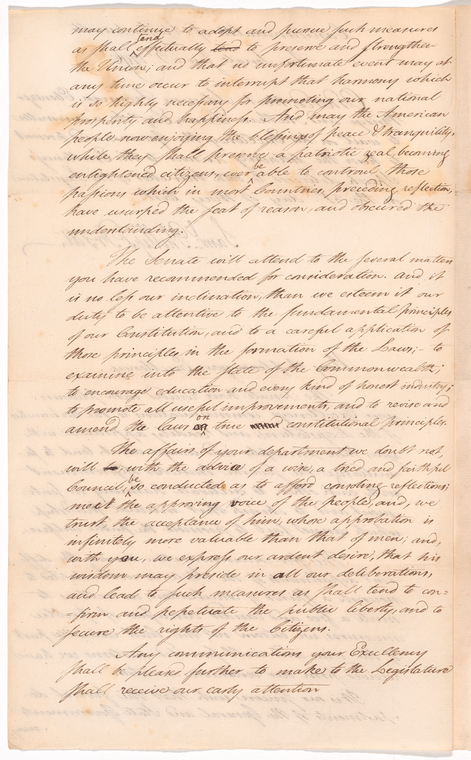 may continue to adopt and pursue such measures
as shall tend effectually tend to preserve and strengthen
the Union; and that no unfortunate event may at
any time occur to interrupt that harmony which
is so highly necessary for promoting our national
prosperity and happiness. And may the American
people now enjoying the blessings of peace & tranquility,
while they shall preserve a patriotic zeal becoming
enlightened citizens, ever be able to controul those
passions which in most Countries, preceding reflection,
have usurped the seat of reason, and obscured the
understanding.
The Senate will attend to the several matters
you have recommended for consideration. And it
is no less our inclination, than we esteem it our
duty to be attentive to the fundamental principles
of our Constitution, and to a careful application of
those principles in the formation of the Laws;- to
examine into the State of the Commonwealth;
to encourage education and every kind of honest industry;
to promote all useful improvements, and to revise and
amend the laws on true constitutional principles.
The affairs of your department we doubt not,
will be with the advice of a wise, a tried and faithful
Council, be so conducted as to afford consoling reflections;
meet the approving voice of the people, and, we
trust, the acceptance of him, whose approbation is
infinitely more valuable than that of men; and,
with you, we express our ardent desire, that his
wisdom may preside in all our deliberations,
and lead to such measures as shall tend to con-
firm and perpetuate the public liberty, and to
secure the rights of the Citizens.
Any communications your Excellency
shall be pleased further to make to the Legislature
shall receive our early attention